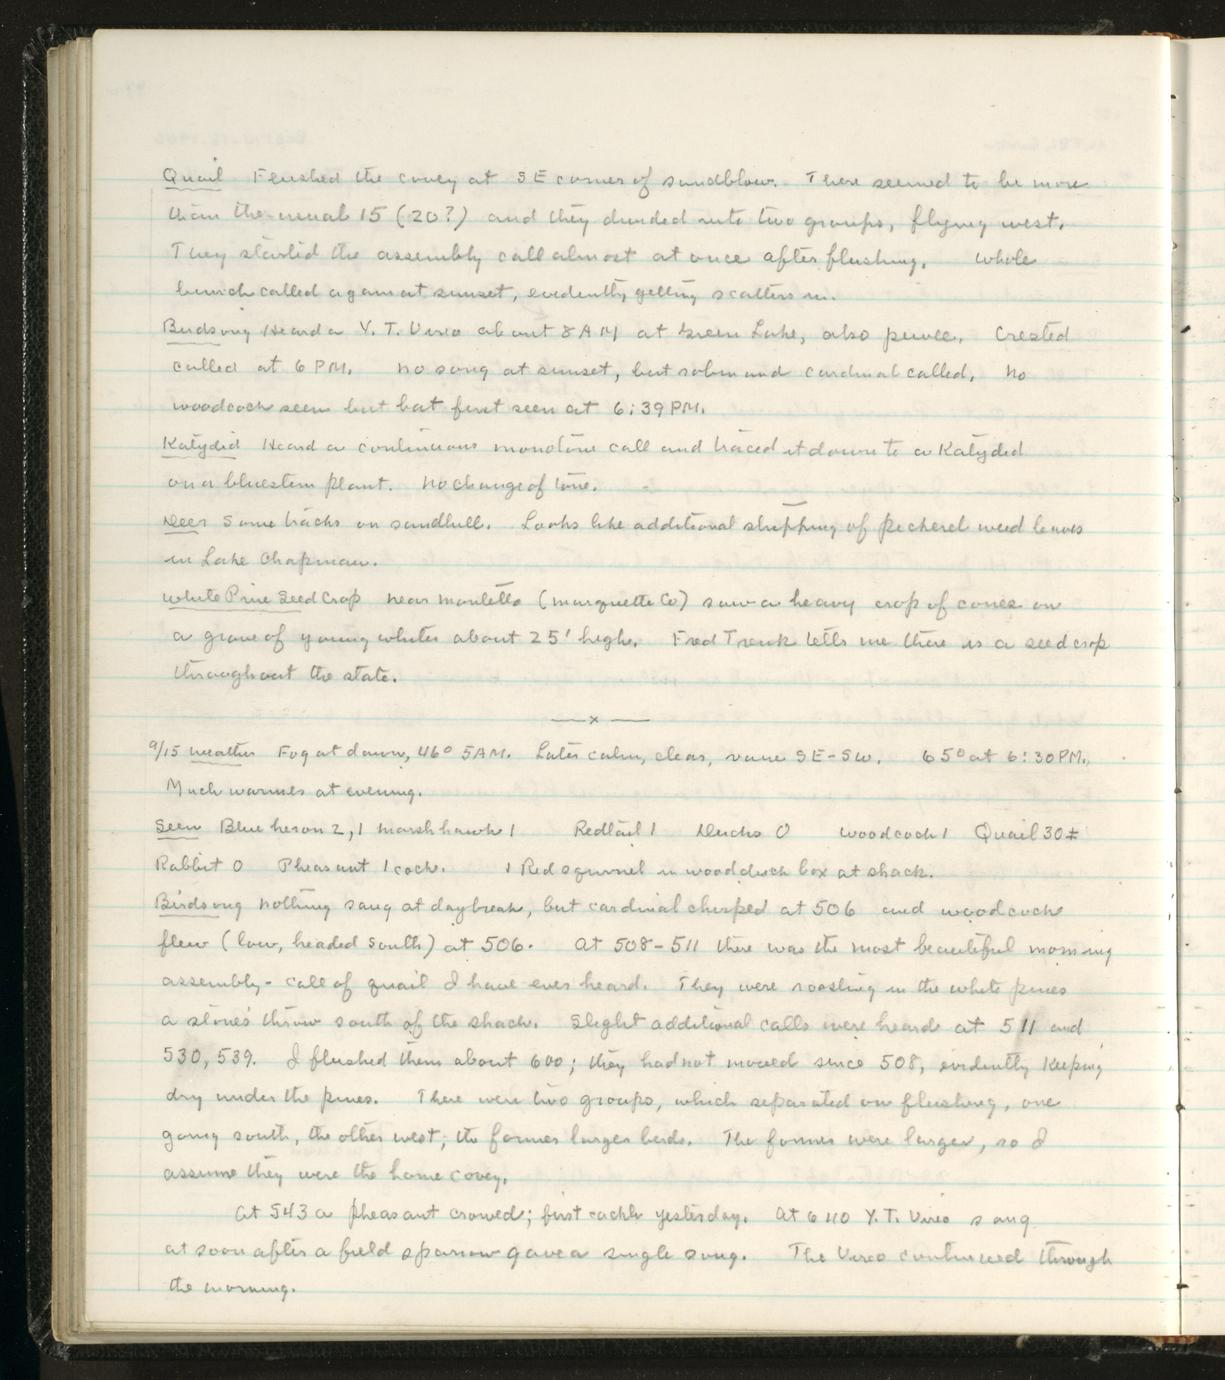 Quail Flushed the covey at SE corner of sandblow. There seemed to be more
than the usual 15 (20?) and they divided into two groups, flying west.
They started the assembly call almost at once after flushing. Whole
bunch called again at sunset, evidently getting scatters in.
Birdsong Heard a Y. T. Vireo about 8 AM at Green Lake, also pewee. Crested
called at 6 PM. No song at sunset, but robin and cardinal called. No
woodcock seen but bat first seen at 6:39 PM.
Katydid Heard a continuous monotone call and traced it down to a Katydid
on a bluestem plant. No change of tone.
Deer Some tracks on sandhill. Looks like additional stripping of pickerel weed leaves
in Lake Chapman.
White Pine Seed Crop Near Montello (Marquette Co) saw a heavy crop of cones on
a grove of young whites about 25' high. Fred Trenk tells me there is a seed crop
throughout the state.
—x—
9/15 Weather Fog at dawn, 46° 5AM. Later calm, clear, vane SE-SW. 65° at 6:30 PM.
Much warmer at evening.
Seen Blue heron 2, 1 Marsh hawk 1 Redtail 1 Ducks 0 Woodcock 1 Quail 30±
Rabbit 0 Pheasant 1 cock. 1 Red squirrel in wood duck box at shack.
Birdsong Nothing sang at daybreak, but cardinal chirped at 506 and woodcock
flew (low, headed south) at 506. At 508-511 there was the most beautiful morning
assembly-call of quail I have ever heard. They were roosting in the white pines
a stone's throw south of the shack. Slight additional calls were heard at 511 and
530, 539. I flushed them about 600; they had not moved since 508, evidently keeping
dry under the pines. There were two groups, which separated on flushing, one
going south, the other west; the former larger birds. The former were larger, so I
assume they were the home covey.
At 543 a pheasant crowed; first cackle yesterday. At 610 Y.T. Vireo sang
at soon after a field sparrow gave a single song. The Vireo continued through
the morning.